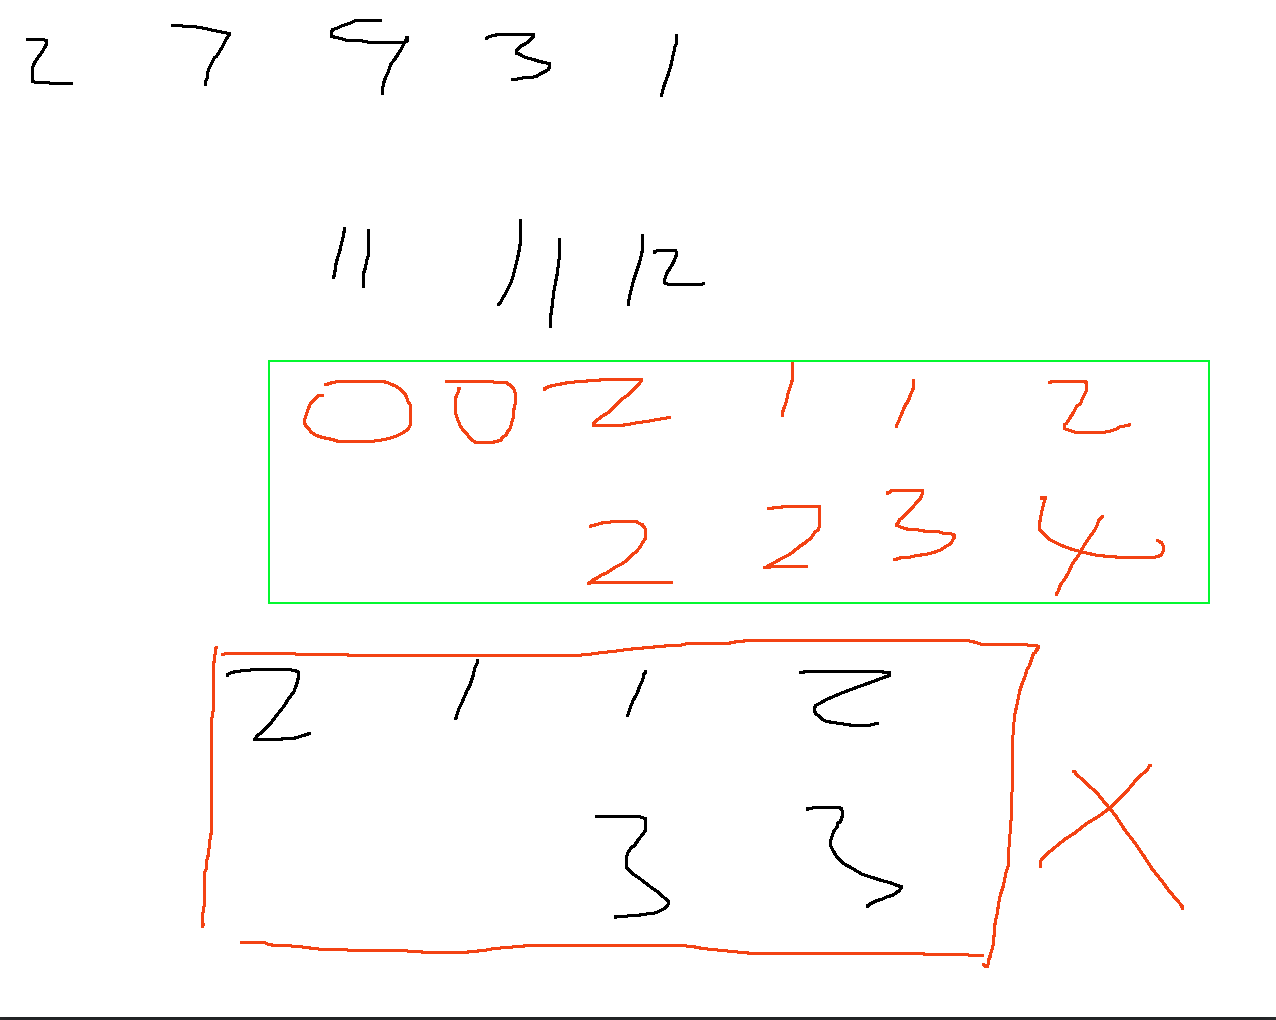 2 7 9 3 1
11 11 12
0 0 2 1 1 2
2 2 3 4
2 1 1 2
3 3
X